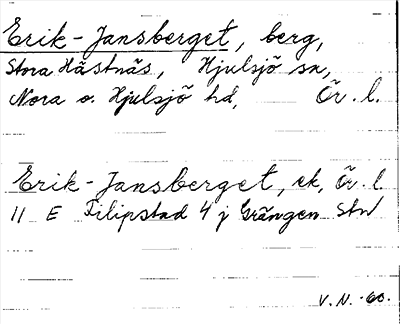 Erik-Jansberget, berg,
Stora Hästnäs, Hjulsjö sn,
Nora o. Hjulsjö hd, Ör. l.
Erik-Jansberget, ek, Ör l
11 E Filipstad 4 j Grängen Stn
V. N. -60.